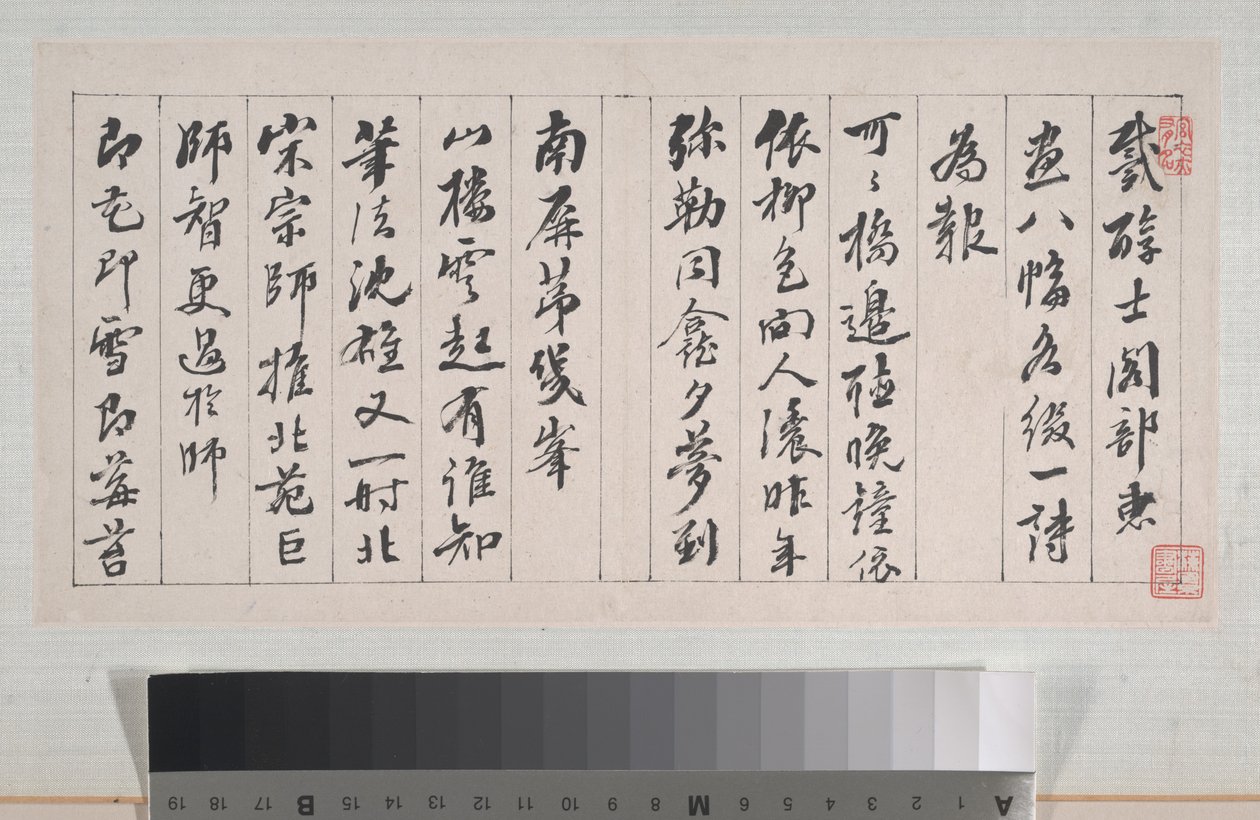 戴醇士閣部惠
畫八幅各綴一詩
為報
橋邊聽晚鐘依
依柳色向人濃昨年
弥勒同龕夕夢到
南屏第幾峯
山樓雲起有誰知
筆法沈雄又一時北
宋宗師推北苑巨
師智更過於師
即花即雪即莓苔
A 1 2 3 4 5 6 M 8 9 10 11 12 13 14 15 B 17 18 19